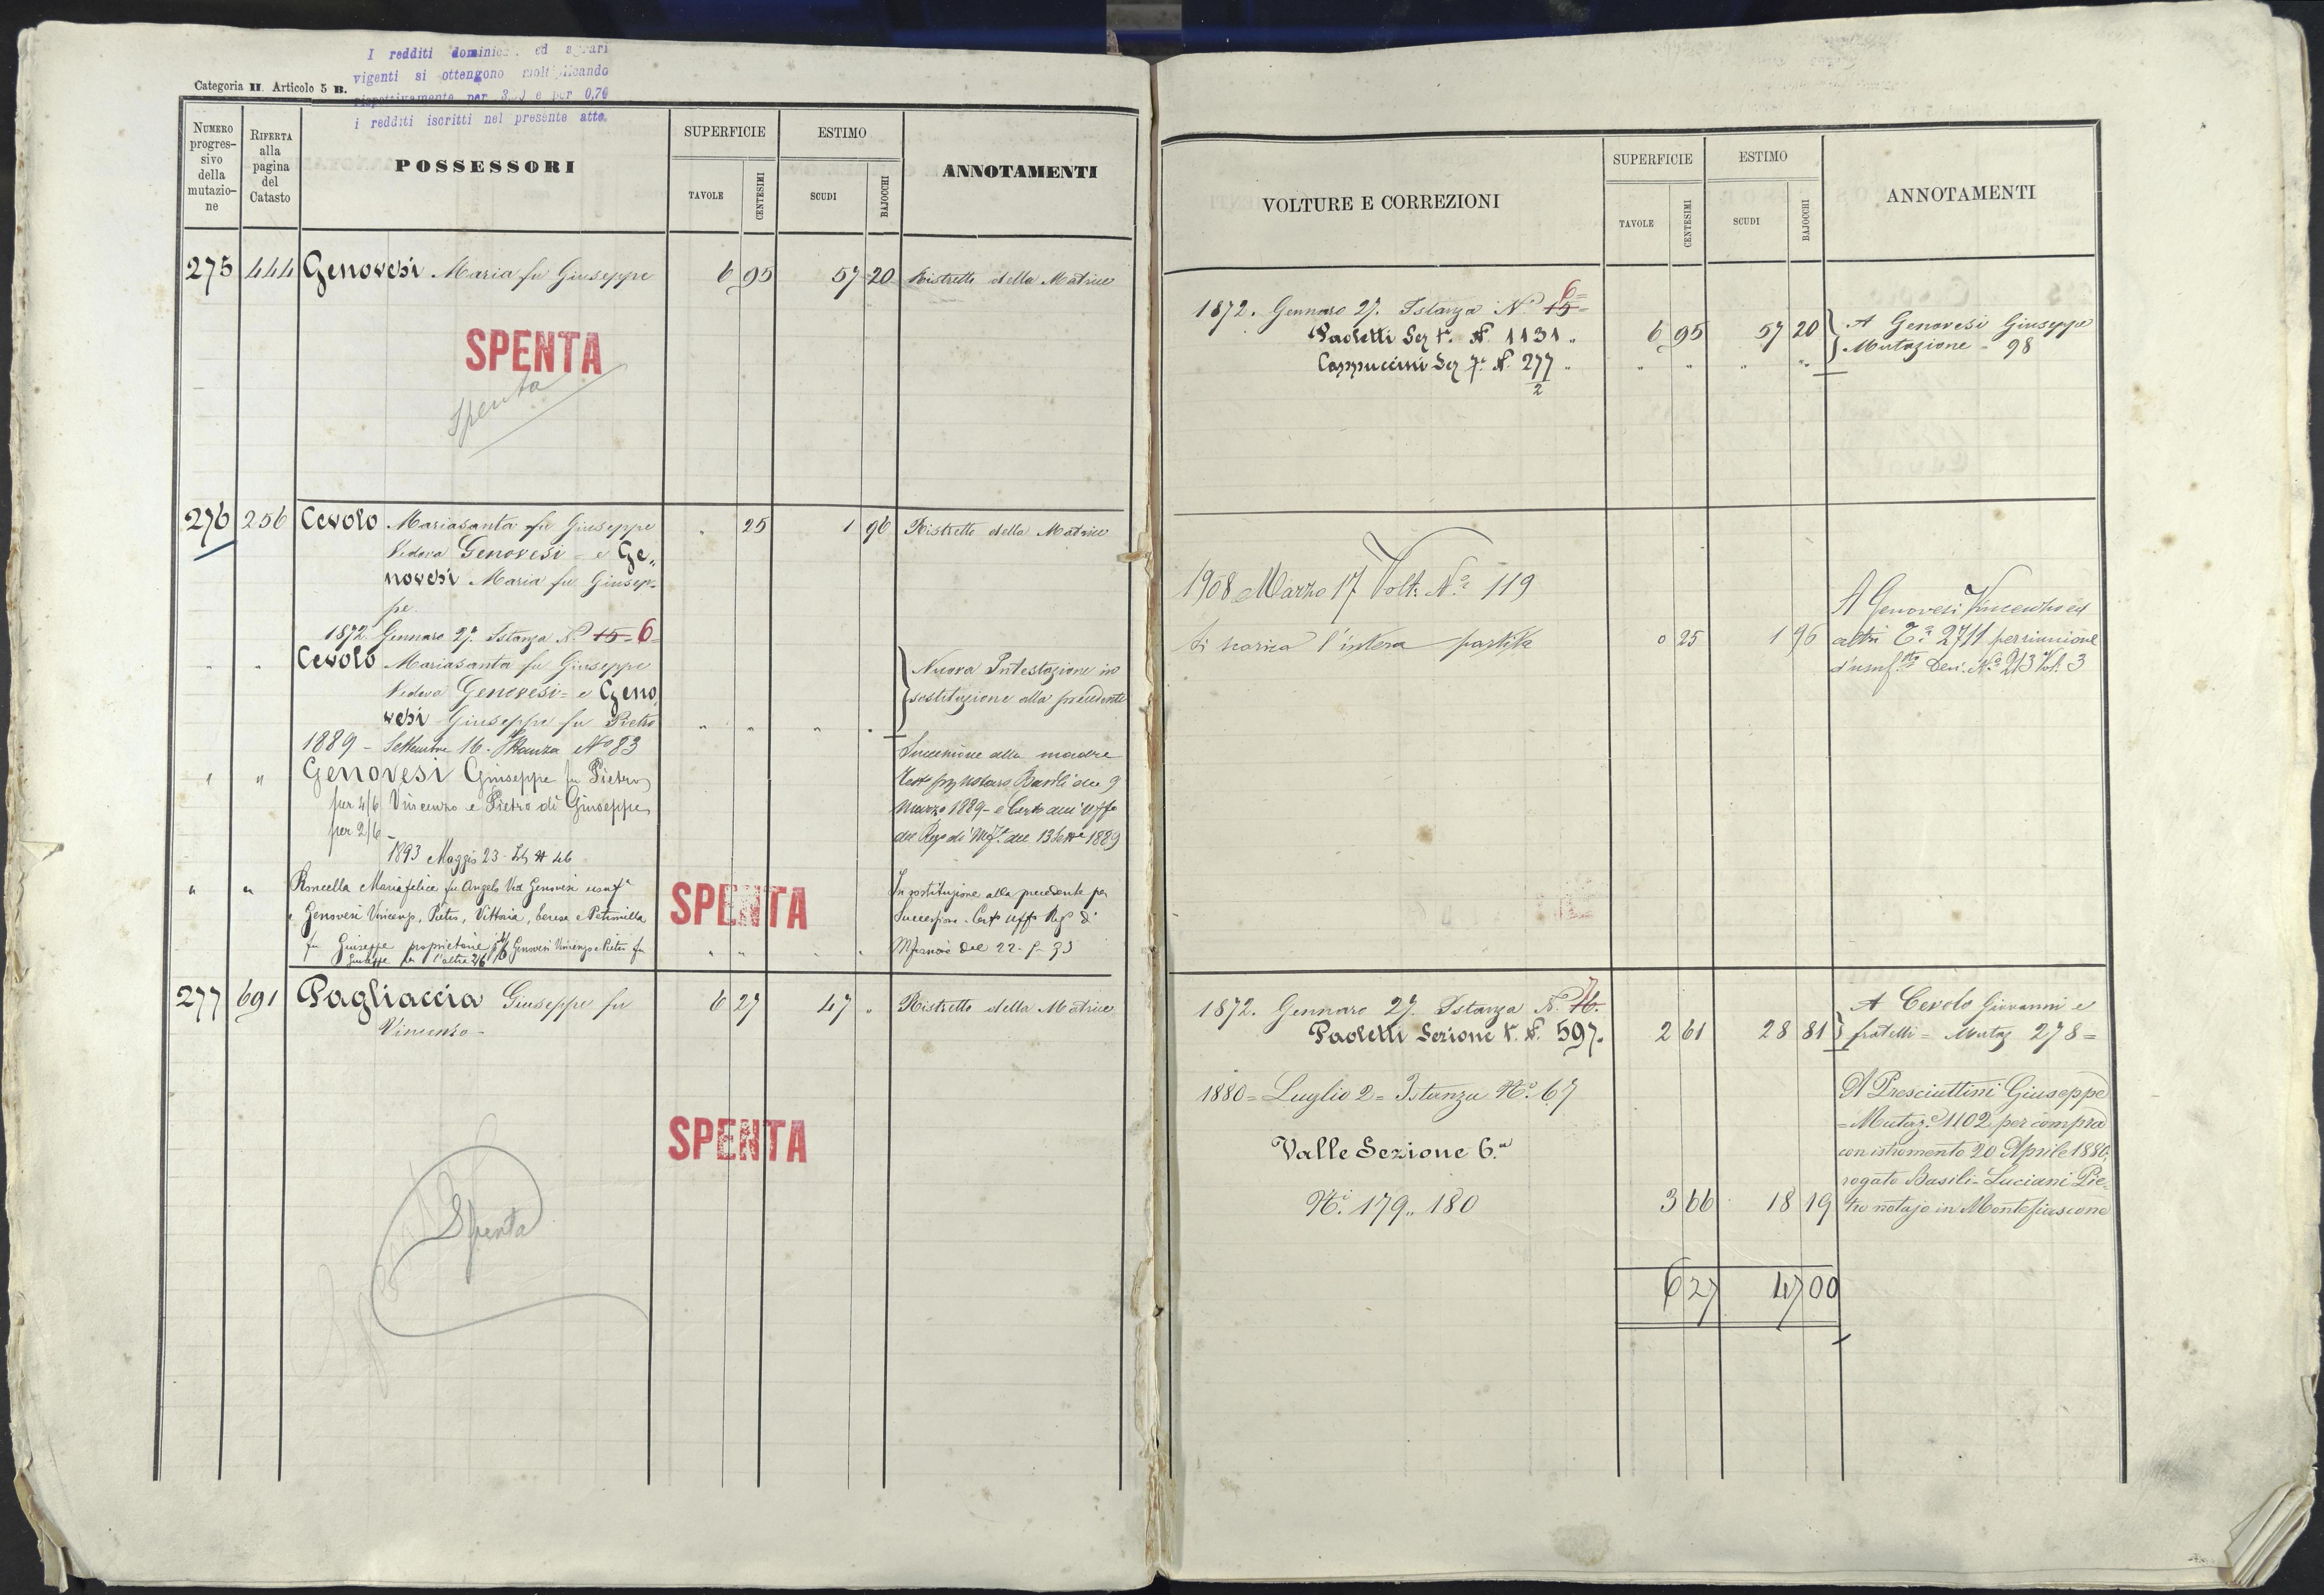 I redditi dominic. ed agrari
vigenti si ottengono moltiplicando
rispettivamente per 3 e per 0,70
i redditi iscritti nel presente atto.
Categoria II. Articolo 5 B.
NUMERO progres- sivo della mutazio- ne
RIFERTA alla pagina del Catasto
POSSESSORI
SUPERFICIE
TAVOLE CENTESIMI
ESTIMO
SCUDI BAJOCCHI
ANNOTAMENTI
275 444 Genovesi Maria fu Giuseppe 6 95 57 20 Ristretto della Matrice
SPENTA
Spenta
276 256 Cevolo Mariasanta fu Giuseppe " 25 1 96 Ristretto della Matrice
Vedova Genovesi = e Ge„
novesi Maria fu Giusep-
pe
1872. Gennaro 27. Istanza N.° 15 = 6 =
" " Cevolo Mariasanta fu Giuseppe Nuova Intestazione in
Vedova Genovesi = e Geno sostituzione alla precedente
vesi Giuseppe fu Pietro " " " "
1889 - Settembre 16 - Istanza N° 83 Successione alla madre
" " Genovesi Giuseppe fu Pietro Basili del 9
per 4/6 Vincenzo e Pietro di Giuseppe Marzo 1889 - e
per 2/6 - del 13 1889
1893 Maggio 23 46
" " Roncella Mariafelice fu Angelo Ved Genovesi usuf.a In sostituzione alla precedente per
e Genovesi Vincenzo, Pietro, Vittoria, Teresa e Petronilla Successione - Cert Uff Reg di
fu Giuseppe proprietarie Genovesi Vincenzo e Pietro fu " " " " del 22-
Giuseppe per l'altre 2/6
SPENTA
277 691 Pagliaccia Giuseppe fu 6 27 47 " Ristretto della Matrice
Vincenzo -
SPENTA
Spenta
VOLTURE E CORREZIONI
SUPERFICIE
TAVOLE CENTESIMI
ESTIMO
SCUDI BAJOCCHI
ANNOTAMENTI
1872. Gennaro 27. Istanza N.° 15 = 6 =
Paoletti Sez V.a N. 1131 " 6 95 57 20 A Genovesi Giuseppe
Mutazione = 98
Cappuccini Sez 7.a N. 277/2 " " " " "
1908 Marzo 17 Volt. N.° 119
Si scarica l'intera partita 0 25 1 96 A Genovesi Vincenzo ed
altri 2711 per riunione
d'usuf.tto Den. N.° 213 Vol. 3
1872. Gennaro 27. Istanza N. 16. 7 A Cevolo Giovanni e
Paoletti Sezione V. N. 597. 2 61 28 81 fratelli = Mutaz 278 =
1880 = Luglio 2 = Istanza N.° 67 A Presciuttini Giuseppe
= Mutaz.e 1102 per compra
Valle Sezione 6.a con istromento 20 Aprile 1880,
rogato Basili-Luciani Pie-
N.i 179 „ 180 3 66 18 19 tro notajo in Montefiascone
6 27 47 00